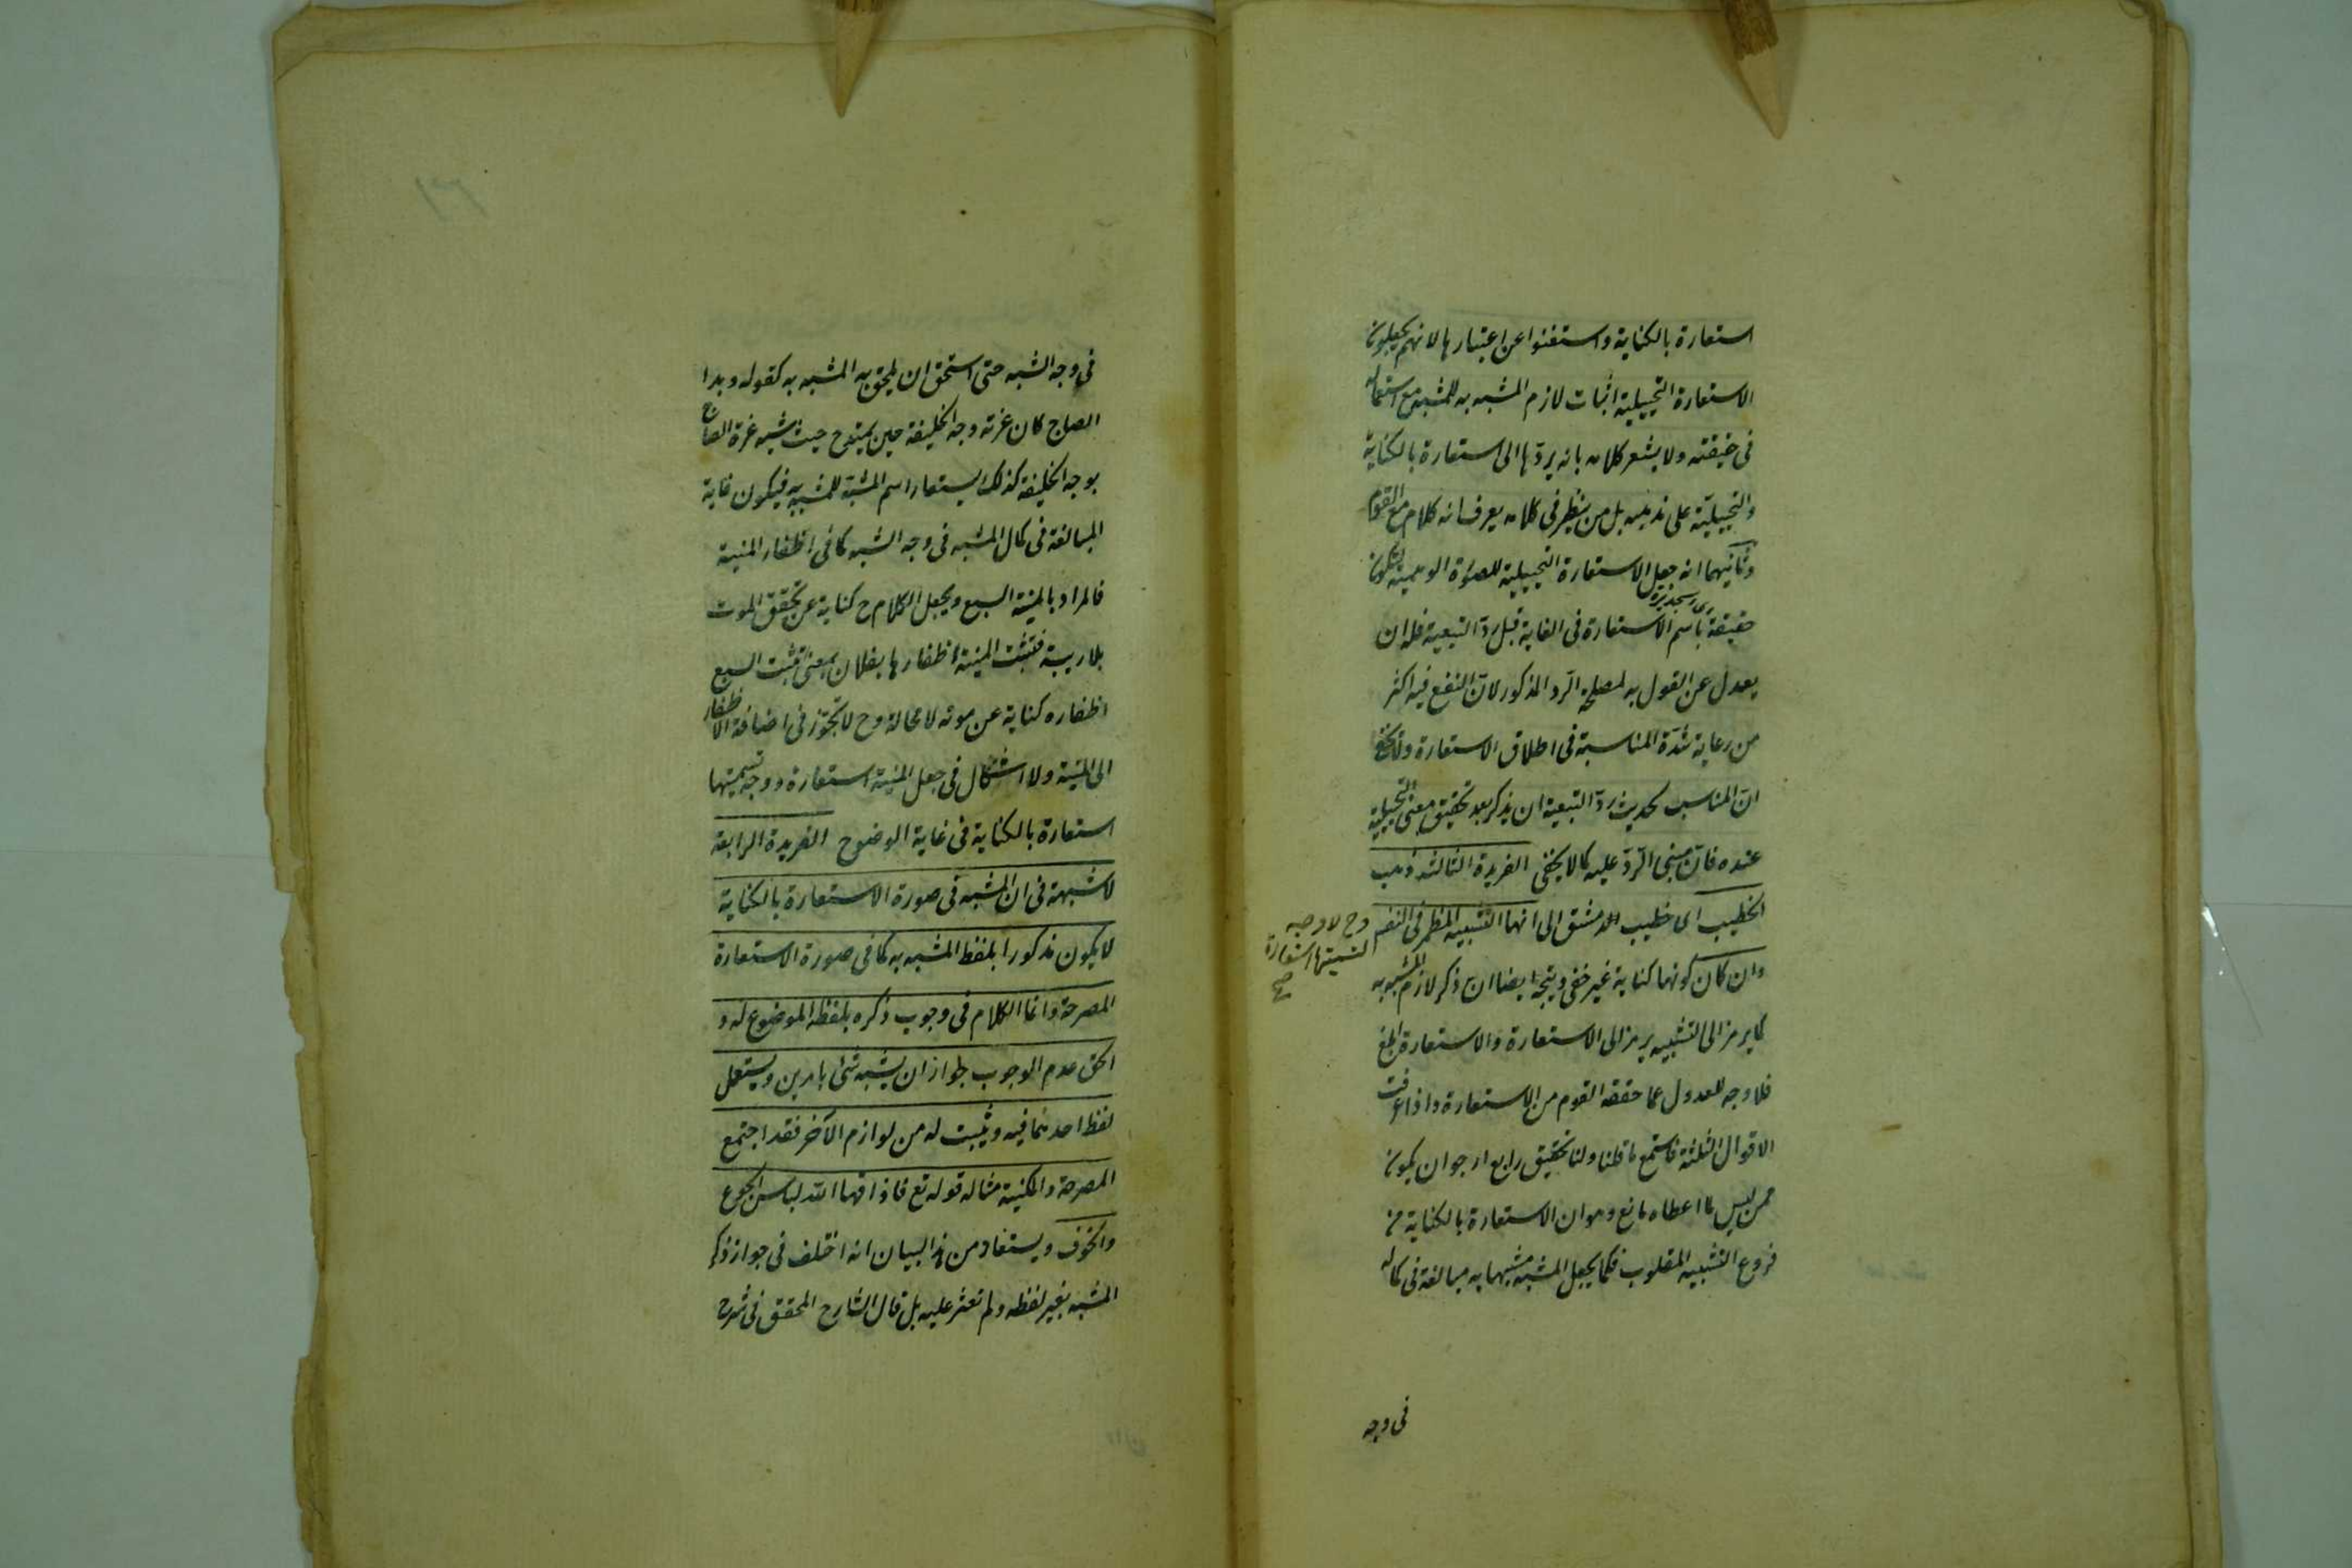 استعارة بالكناية واستغنوا عن اعتبارها لانهم يجعلون
الاستعارة التخييلية اثبات لازم المشبه به للمشبه مع استعماله
فى حقيقته ولا يشعر كلامه بانه يردّها الى استعارة بالكناية
والتخييليّة على مذهبه بل من ينظر فى كلامه يعرف انه كلام مع القوم
وثانيهما انه جعل الاستعارة التخييلية للصورة الوهمية لتكون
حقيقة باسم الاستعارة فى الغاية قبل ردّ التبعية فله ان
يعدل عن القول به لمصلحة الرد المذكور لانّ النفع فيه اكثر
من رعاية شدّة المناسبة فى اطلاق الاستعارة ولا يخفى
انّ المناسب لحديث ردّ التبعية ان يذكر بعد تحقيق معنى التخييلية
عنده فانّ مبنى الردّ عليه كما لا يخفى الفريدة الثالثة ذهب
الخطيب اى خطيب الدمشق الى انها التشبيه المظمر فى النفس
وح لا وجه
لتسميتها استعارة
صح
وان كان كونها كناية غير خفى ويتجه ايضا ان ذكر لازم المشبه به
كما يرمز الى التشبيه يرمز الى الاستعارة والاستعارة ابلغ
فلا وجه للعدول عما حققه القوم من الاستعارة واذا عرفت
الاقوال الثلثة فاستمع ما قلنا ولنا تحقيق رابع ارجو ان يكون
ممن ليس لما اعطاه مانع وهو ان الاستعارة بالكناية من
فروع التشبيه المقلوب فكما يجعل المشبه مشبها به مبالغة فى كماله
فى وجه
فى وجه الشبه حتى استحق ان يلحق به المشبه به كقوله وبدا
الصباح كان غرته وجه الخليفة حين يمتدح حيث شبه غرة الصباح
بوجه الخليفة كذلك يستعار اسم المشبه للمشبه به فيكون غاية
المبالغة فى كمال المشبه فى وجه الشبه كما فى اظفار المنية
فالمراد بالمنية السبع ويجعل الكلام ح كناية عن تحقق الموت
بلا ريبة فتنشب المنية اظفارها بفلان بمعنى تنشب السبع
اظفاره كناية عن موته لا محالة وح لا تجوّز فى اضافة الاظفار
الى المنية ولا اشكال فى جعل المنية استعارة ووجه تسميتها
استعارة بالكناية فى غاية الوضوح الفريدة الرابعة
لا شبهة فى ان المشبه فى صورة الاستعارة بالكناية
لا يكون مذكورا بلفظ المشبه به كما فى صورة الاستعارة
المصرحة وانما الكلام فى وجوب ذكره بلفظه الموضوع له و
الحق عدم الوجوب لجواز ان يشبه شئ بامرين ويستعمل
لفظ احدهما فيه ويثبت له من لوازم الآخر فقد اجتمع
المصرحة والمكنية مثاله قوله تع فاذاقها الله لباس الجوع
والخوف ويستفاد من هذا البيان انه اختلف فى جواز ذكر
المشبه بغير لفظه ولم نعثر عليه بل قال الشارح المحقق فى شرح